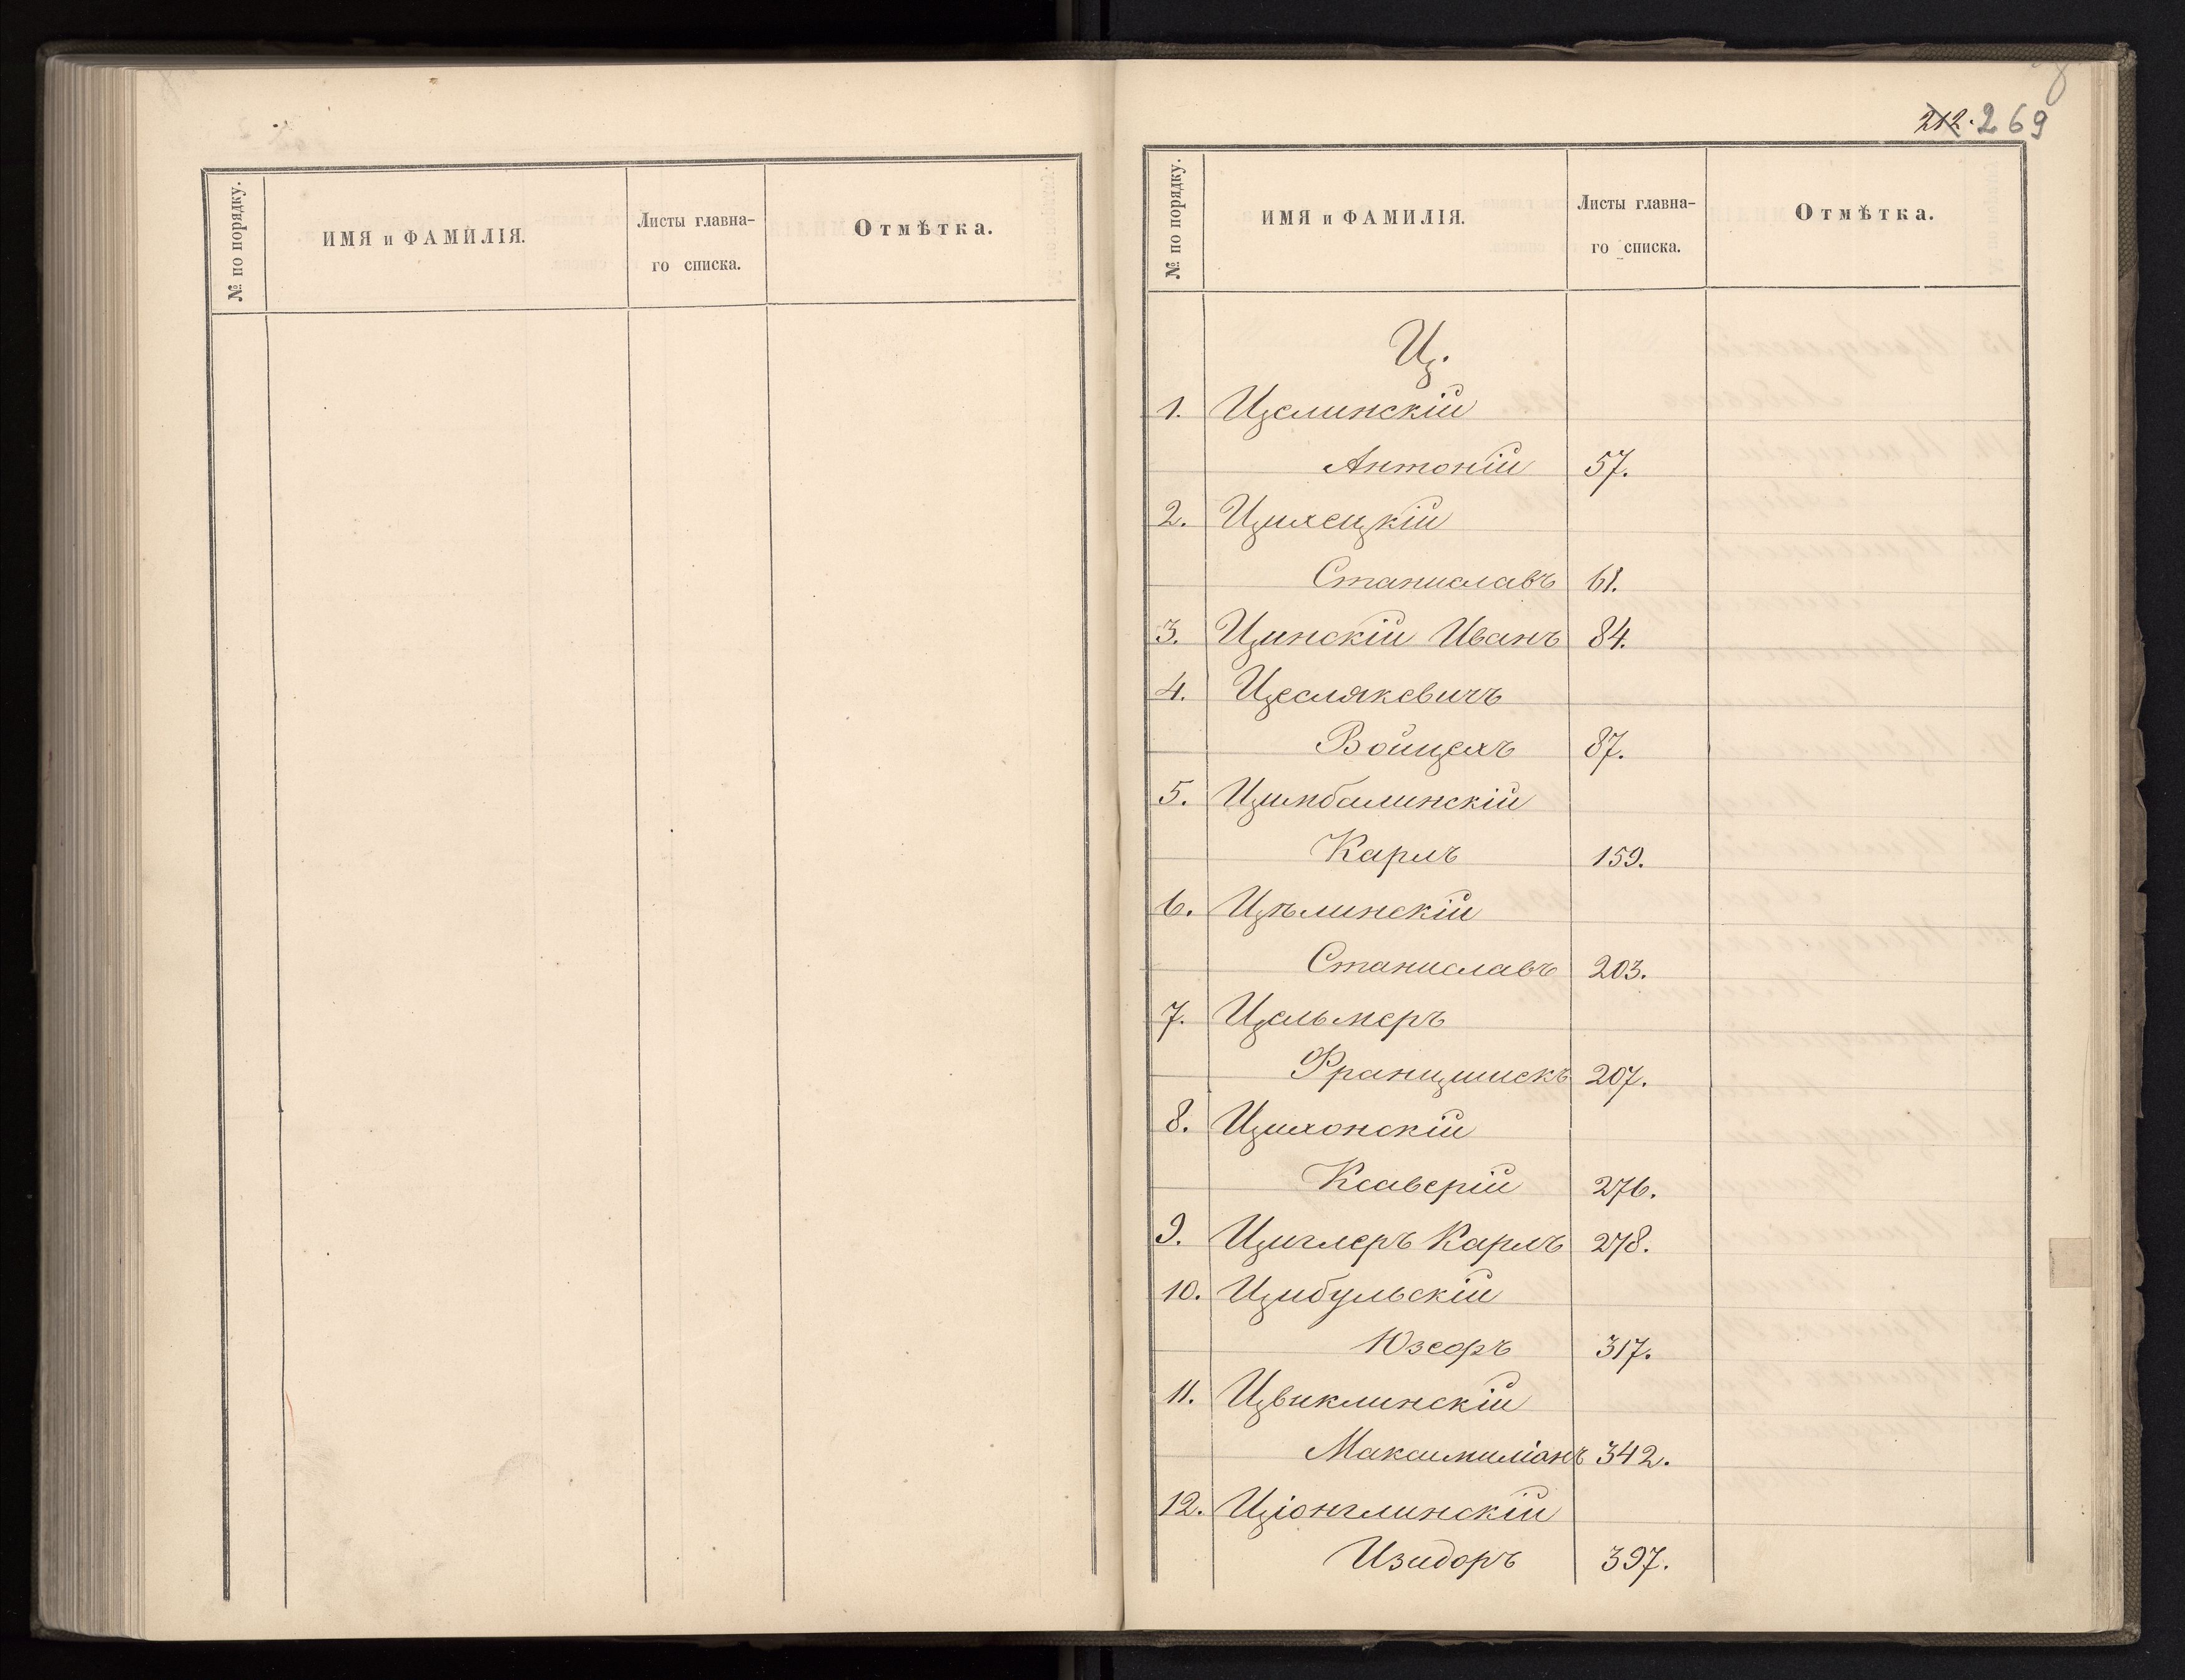 № по порядку.
ИМЯ и ФАМИЛІЯ.
Листы главна-
го списка.
Отмѣтка.
212. 269
№ по порядку.
ИМЯ и ФАМИЛІЯ.
Листы главна-
го списка.
Отмѣтка.
Ц.
1. Целинскій
Антоній 57.
2. Цихецкій
Станиславъ 61.
3. Цинскій Иванъ 84.
4. Цеслякевичъ
Войцехъ 87.
5. Цимбалинскій
Карлъ 159.
6. Цѣлинскій
Станиславъ 203.
7. Цельмеръ
Францишекъ 207.
8. Цихонскій
Ксаверій 276.
9. Циглеръ Карлъ 278.
10. Цибульскій
Юзефъ 317.
11. Цвиклинскій
Максимиліанъ 342.
12. Ціонглинскій
Изидоръ 397.